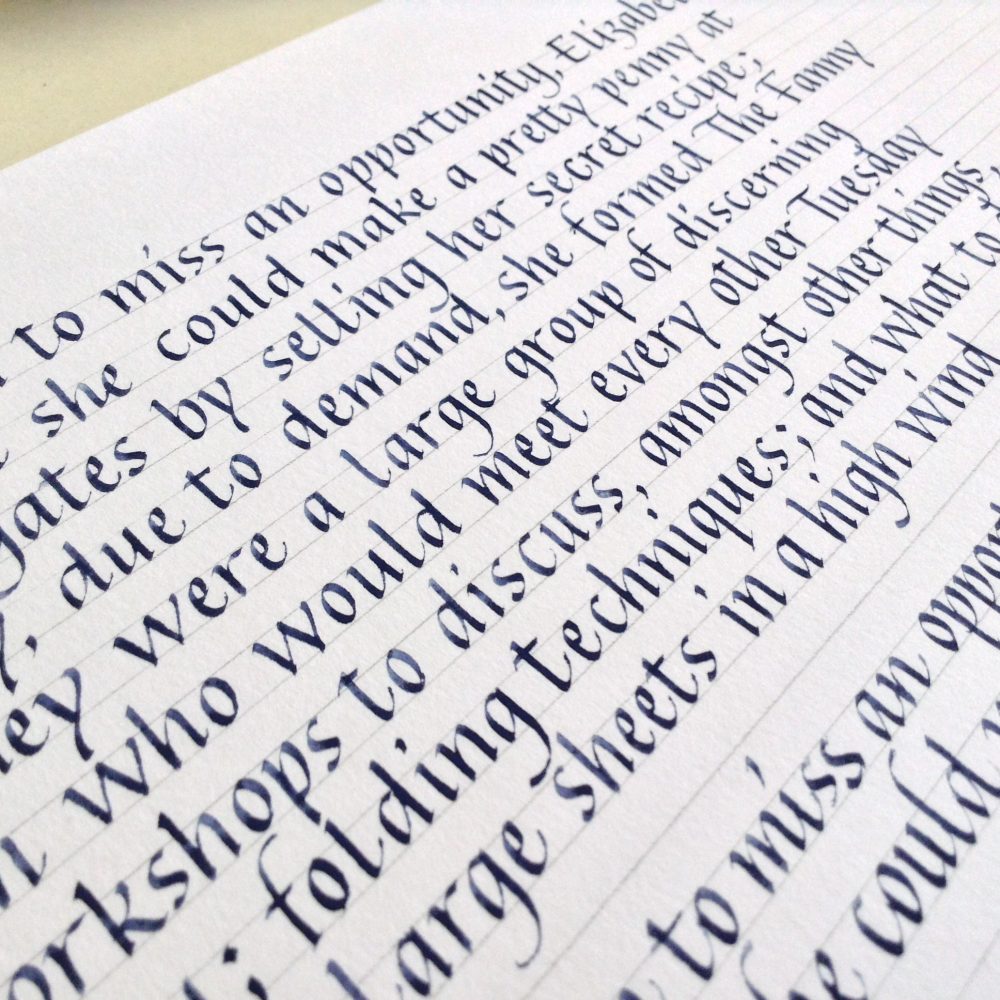 to miss an opportunity, Elizabe
she could make a pretty penny at
gates by selling her secret recipe;
y, due to demand, she formed The Fanny
hey were a large group of discerning
n who would meet every other Tuesday
orkshops to discuss, amongst other things,
; folding techniques; and what to
large sheets in a high wind
to miss an opport
he could